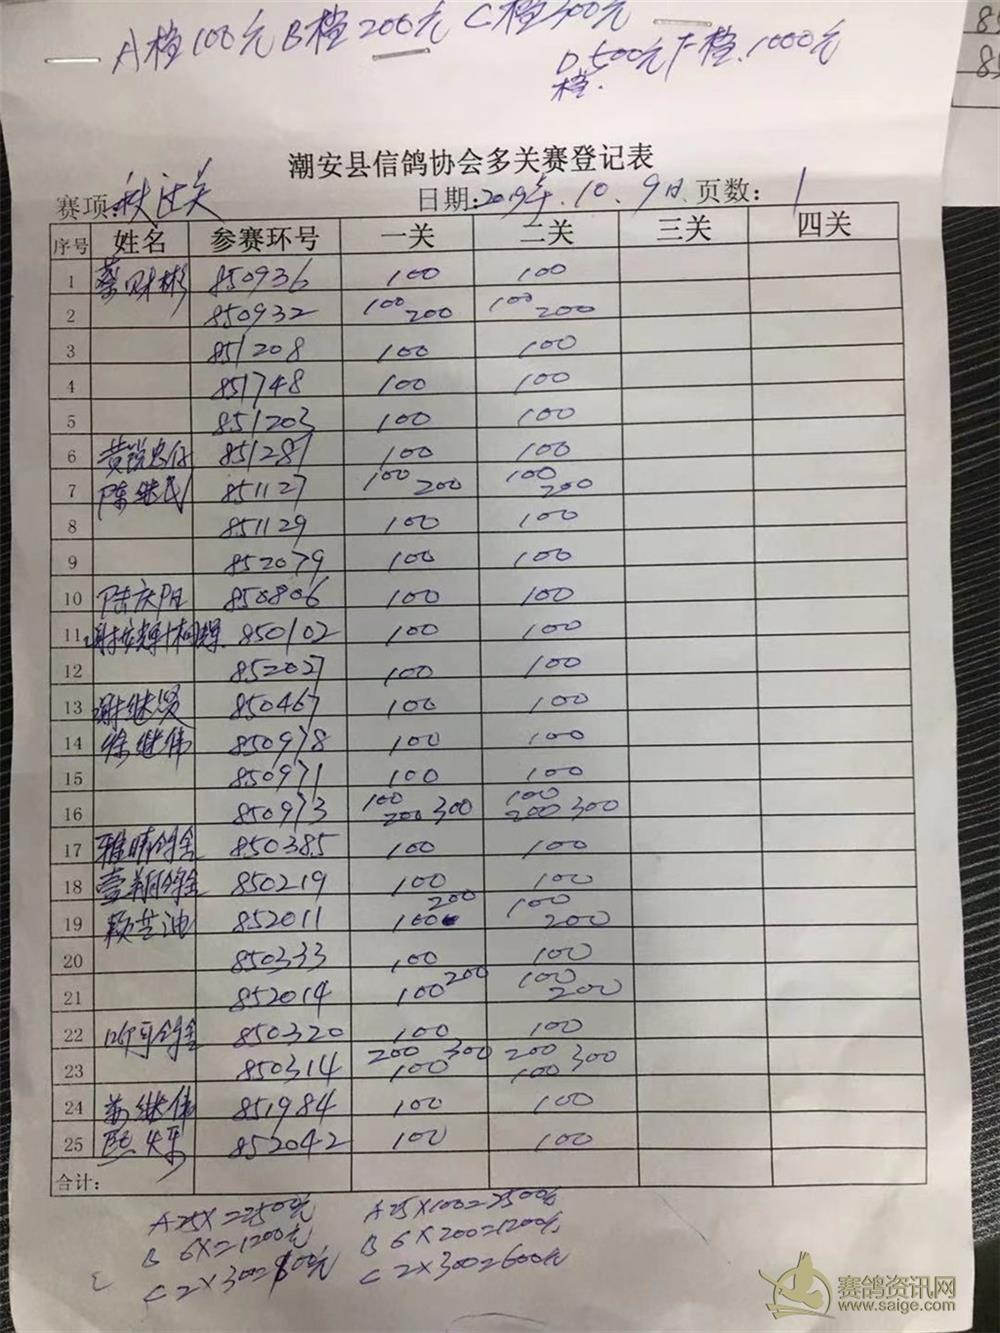 A档100元 B档200元 C档300元
D档.500元 F档.1000元
潮安县信鸽协会多关赛登记表
赛项: 秋 关 日期: 2019年.10.9日 页数: 1
序号 姓名 参赛环号 一关 二关 三关 四关
1 蔡财彬 850936 100 100
2 850932 100 200 100 200
3 851208 100 100
4 851748 100 100
5 851203 100 100
6 黄 851287 100 100
7 陈继武 851127 100 200 100 200
8 851129 100 100
9 852079 100 100
10 陆庆阳 850806 100 100
11 850102 100 100
12 852027 100 100
13 谢继贤 850467 100 100
14 徐继伟 850978 100 100
15 850971 100 100
16 850973 100 200 300 100 200 300
17 雅晴鸽舍 850385 100 100
18 壹翔鸽舍 850219 100 100
19 852011 100 200 100 200
20 850333 100 100
21 852014 100 200 100 200
22 鸽舍 850320 100 100
23 850314 200 300 100 200 300 100
24 继伟 851984 100 100
25 852042 100 100
合计:
A25X=2500元 A25X100=2500元
B 6X=1200元 B 6X200=1200元
C 2X300=600元 C 2X300=600元
赛鸽资讯网
www.saige.com
85
85